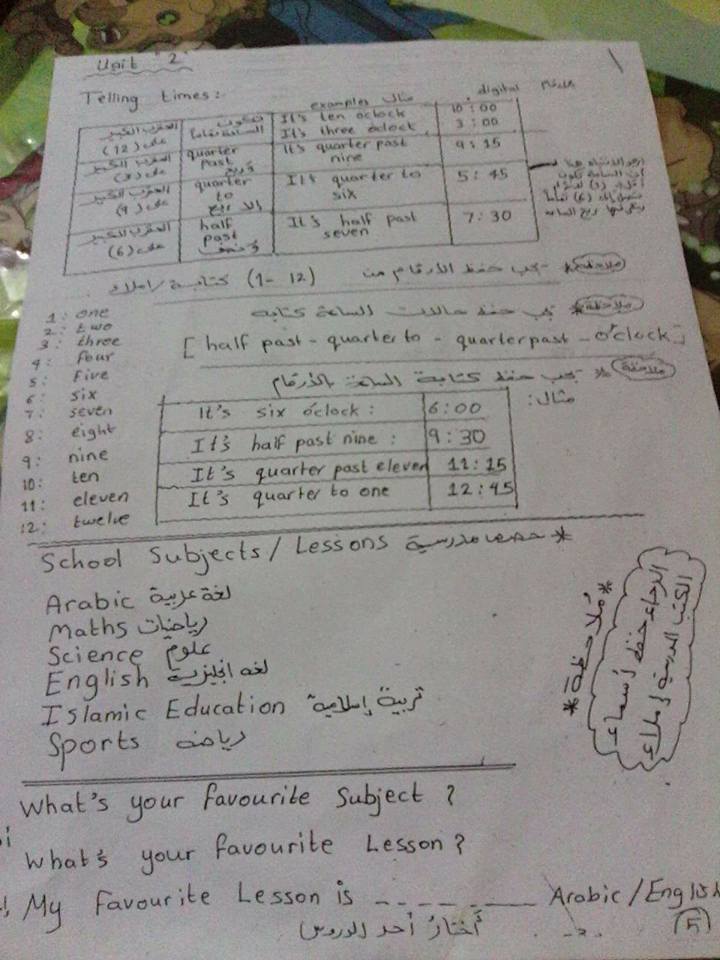 Unit "2"
Telling times:
examples مثال digital
العقرب الكبير على (12) تكون الساعة تماماً It's ten oclock 10:00
It's three oclock 3:00
العقرب الكبير على (3) quarter past و ربع It's quarter past nine 9:15
العقرب الكبير على (9) quarter to إلا ربع It's quarter to six 5:45
العقرب الكبير على (6) half past و نصف It's half past seven 7:30
ملاحظة * يجب حفظ الأرقام من (1-12) كتابة/املاء
1: one
2: two
3: three
4: four
5: Five
6: six
7: seven
8: eight
9: nine
10: ten
11: eleven
12: twelve
ملاحظة * يجب حفظ حالات الساعة كتابه
[half past - quarter to - quarter past - o'clock]
ملاحظة * يجب حفظ كتابة الساعة بالأرقام
مثال:
It's six o'clock: 6:00
It's half past nine: 9:30
It's quarter past eleven 11:15
It's quarter to one 12:45
School Subjects/Lessons حصص مدرسية *
Arabic لغة عربية
Maths رياضيات
Science علوم
English لغه انجليزية
Islamic Education تربية إسلامية
Sports رياضه
* ملاحظة *
الرجاء حفظ أسماء
الكتب المدرسية إملاء
What's your favourite Subject?
What's your favourite Lesson?
My favourite Lesson is _ _ _ _ ___ Arabic/English
أختار أحد الدروس
5